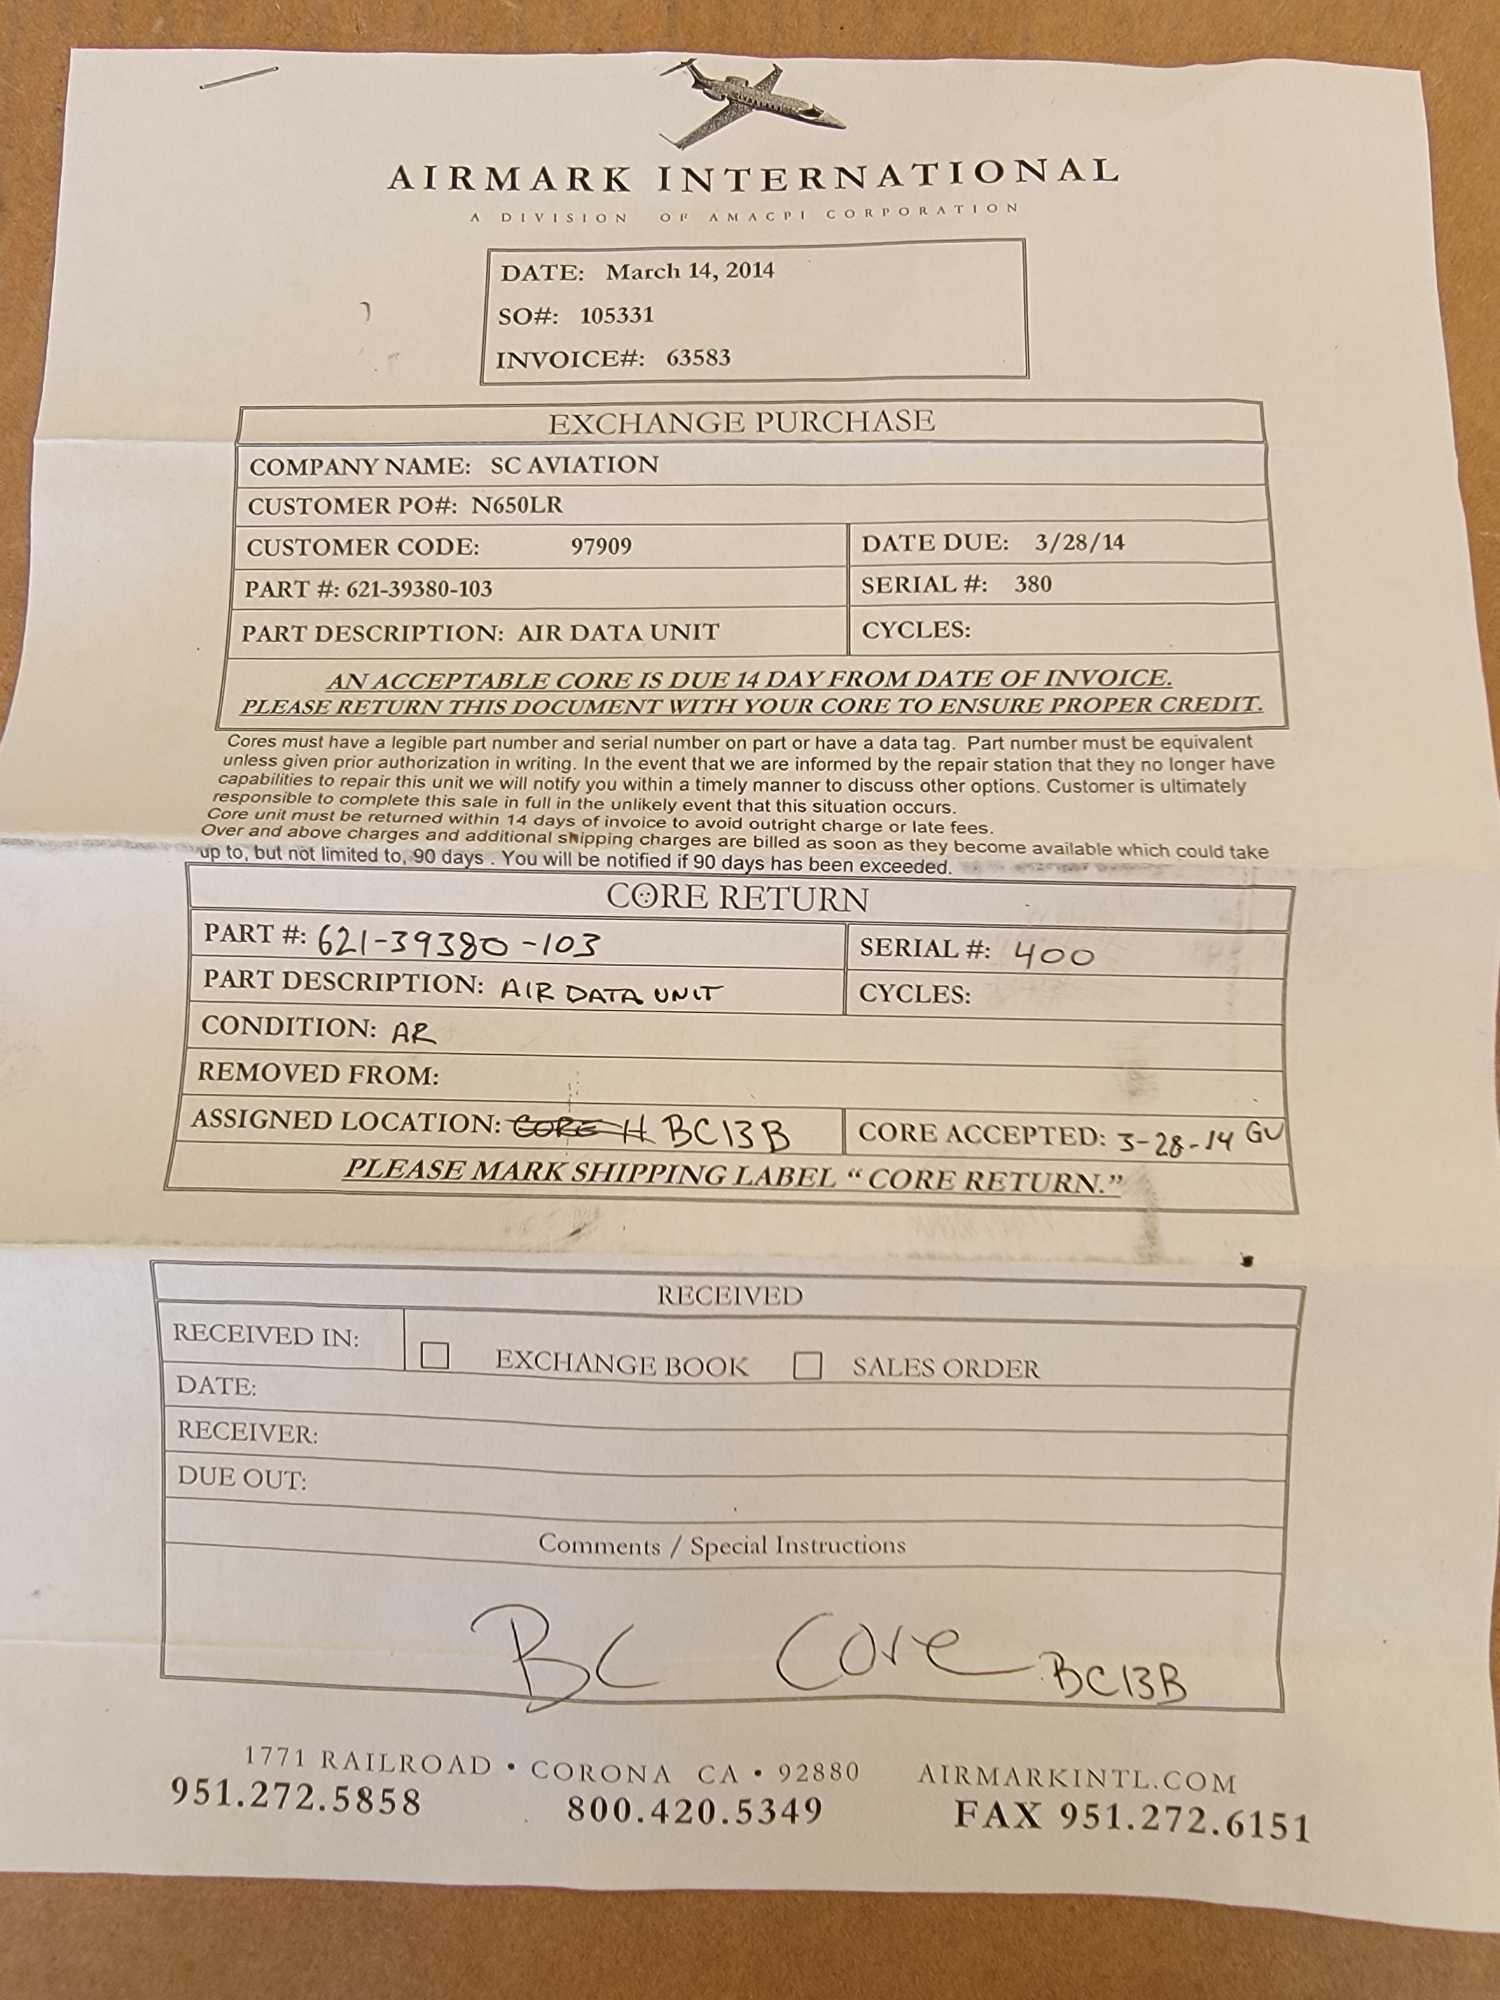 AIRMARK INTERNATIONAL
A DIVISION OF AMACPI CORPORATION
DATE: March 14, 2014
SO#: 105331
INVOICE#: 63583
EXCHANGE PURCHASE
COMPANY NAME: SC AVIATION
CUSTOMER PO#: N650LR
CUSTOMER CODE: 97909 DATE DUE: 3/28/14
PART #: 621-39380-103 SERIAL #: 380
PART DESCRIPTION: AIR DATA UNIT CYCLES:
AN ACCEPTABLE CORE IS DUE 14 DAY FROM DATE OF INVOICE.
PLEASE RETURN THIS DOCUMENT WITH YOUR CORE TO ENSURE PROPER CREDIT.
Cores must have a legible part number and serial number on part or have a data tag. Part number must be equivalent
unless given prior authorization in writing. In the event that we are informed by the repair station that they no longer have
capabilities to repair this unit we will notify you within a timely manner to discuss other options. Customer is ultimately
responsible to complete this sale in full in the unlikely event that this situation occurs.
Core unit must be returned within 14 days of invoice to avoid outright charge or late fees.
Over and above charges and additional shipping charges are billed as soon as they become available which could take
up to, but not limited to, 90 days . You will be notified if 90 days has been exceeded.
CORE RETURN
PART #: 621-39380-103 SERIAL #: 400
PART DESCRIPTION: AIR DATA UNIT CYCLES:
CONDITION: AR
REMOVED FROM:
ASSIGNED LOCATION: CORE H BC13B CORE ACCEPTED: 3-28-14 GU
PLEASE MARK SHIPPING LABEL “ CORE RETURN.”
RECEIVED
RECEIVED IN: EXCHANGE BOOK SALES ORDER
DATE:
RECEIVER:
DUE OUT:
Comments / Special Instructions
BC Core BC13B
1771 RAILROAD • CORONA CA • 92880 AIRMARKINTL.COM
951.272.5858 800.420.5349 FAX 951.272.6151